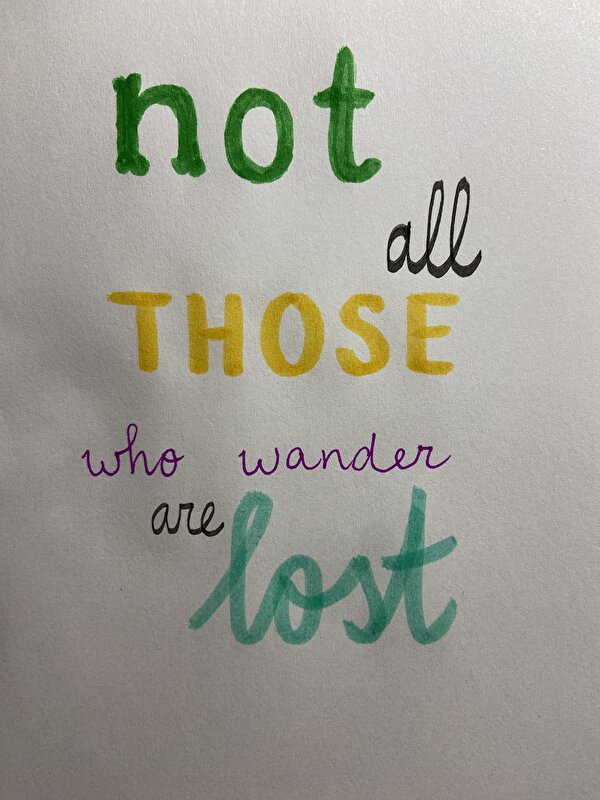 not
all
THOSE
who wander
are
lost